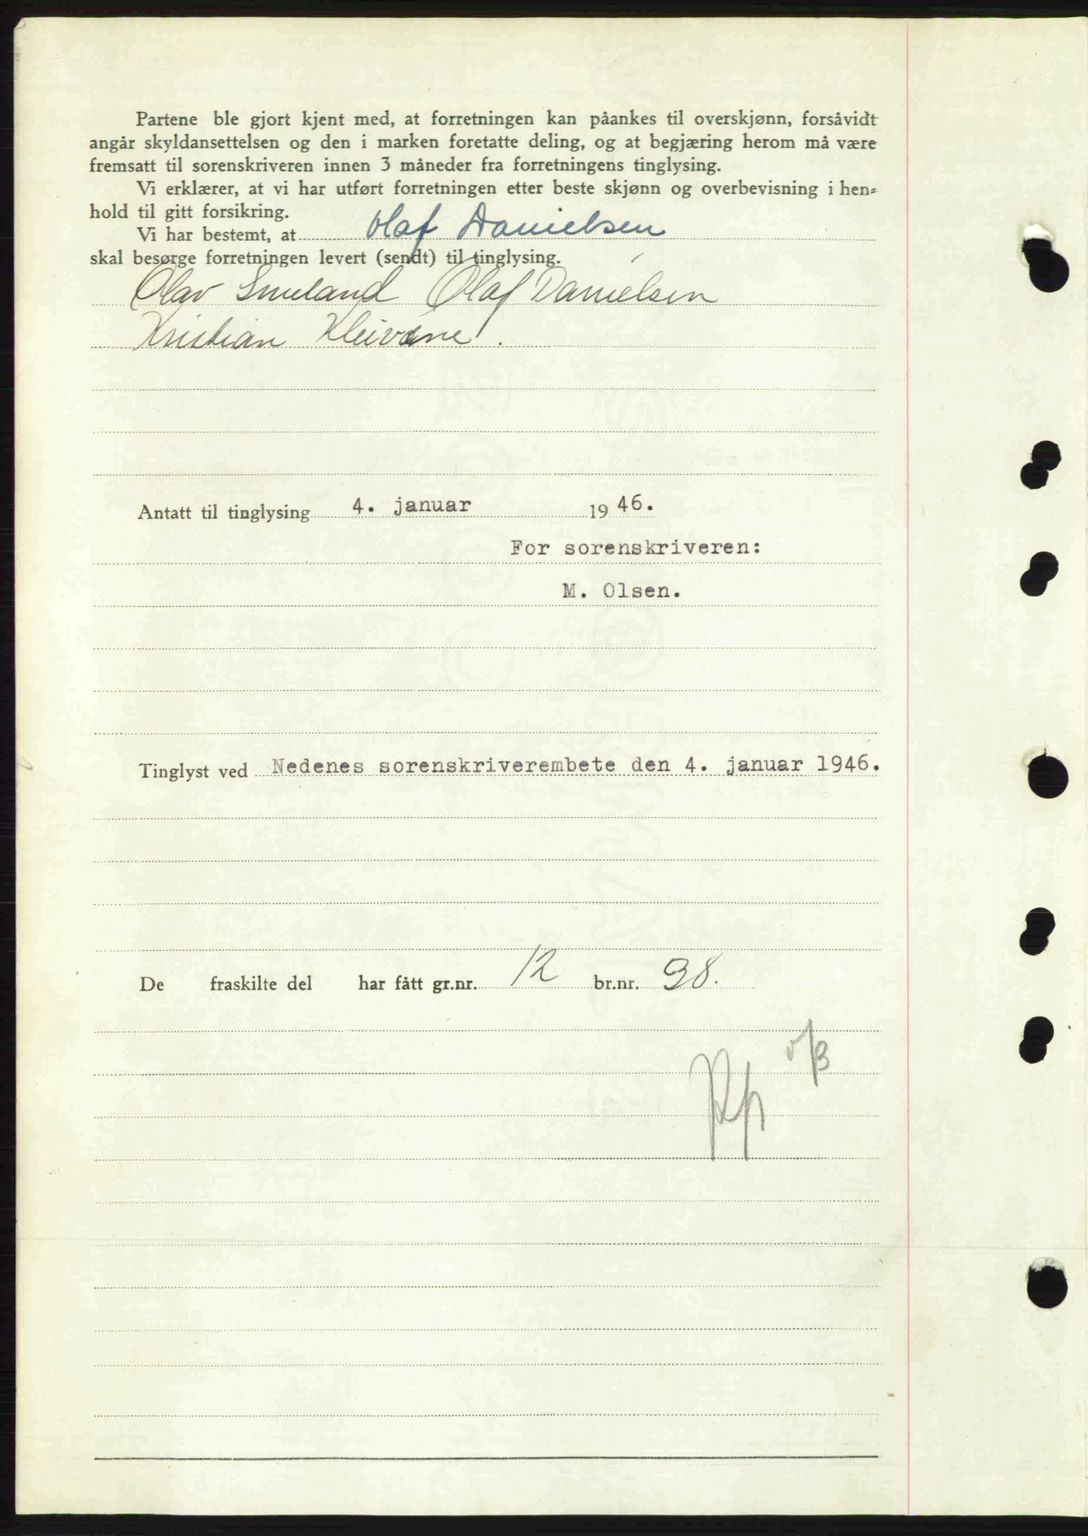 Partene ble gjort kjent med, at forretningen kan påankes til overskjønn, forsåvidt
angår skyldansettelsen og den i marken foretatte deling, og at begjæring herom må være
fremsatt til sorenskriveren innen 3 måneder fra forretningens tinglysing.
Vi erklærer, at vi har utført forretningen etter beste skjønn og overbevisning i hen-
hold til gitt forsikring.
Vi har bestemt, at Olaf Danielsen
skal besørge forretningen levert (sendt) til tinglysing.
Olav Smeland Olaf Danielsen
Kristian Kleivane.
Antatt til tinglysing 4. januar 1946.
For sorenskriveren:
M. Olsen.
Tinglyst ved Nedenes sorenskriverembete den 4. januar 1946.
De fraskilte del har fått gr.nr. 12 br.nr. 98.